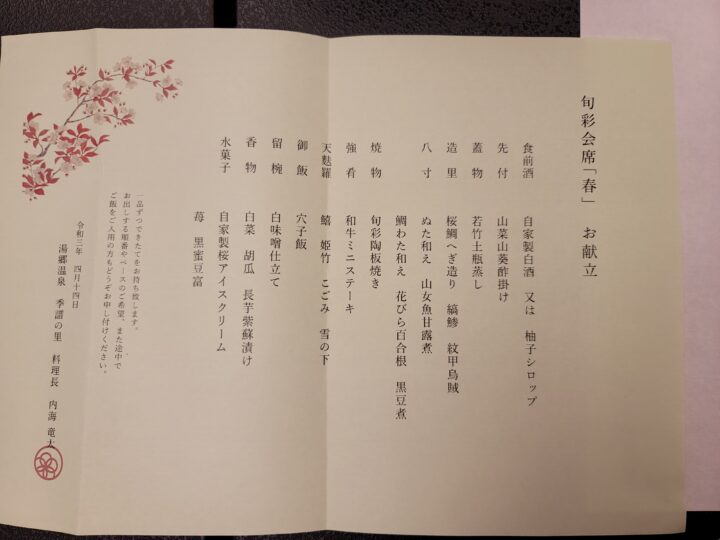 旬彩会席「春」　お献立
食前酒　自家製白酒　又は　柚子シロップ
先付　山菜山葵酢掛け
蓋物　若竹土瓶蒸し
造里　桜鯛へぎ造り　縞鯵　紋甲烏賊
八寸　ぬた和え　山女魚甘露煮
鯛わた和え　花びら百合根　黒豆煮
焼物　旬彩陶板焼き
強肴　和牛ミニステーキ
天麩羅　鱚　姫竹　こごみ　雪の下
御飯　穴子飯
留椀　白味噌仕立て
香物　白菜　胡瓜　長芋紫蘇漬け
水菓子　自家製桜アイスクリーム
苺　黒蜜豆富
一品ずつできたてをお持ち致します。
お出しする順番やペースのご希望、また途中で
ご飯をご入用の方もどうぞお申し付けください。
令和三年　四月十四日
湯郷温泉　季譜の里　料理長　内海 竜太